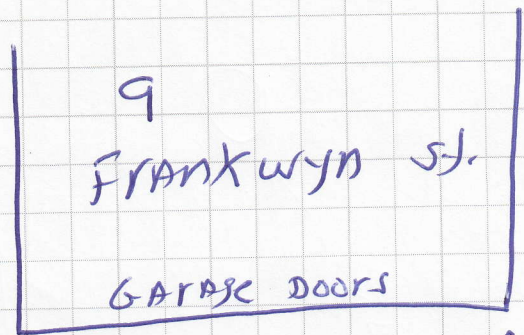 9
Frankwyn St.
Garage Doors